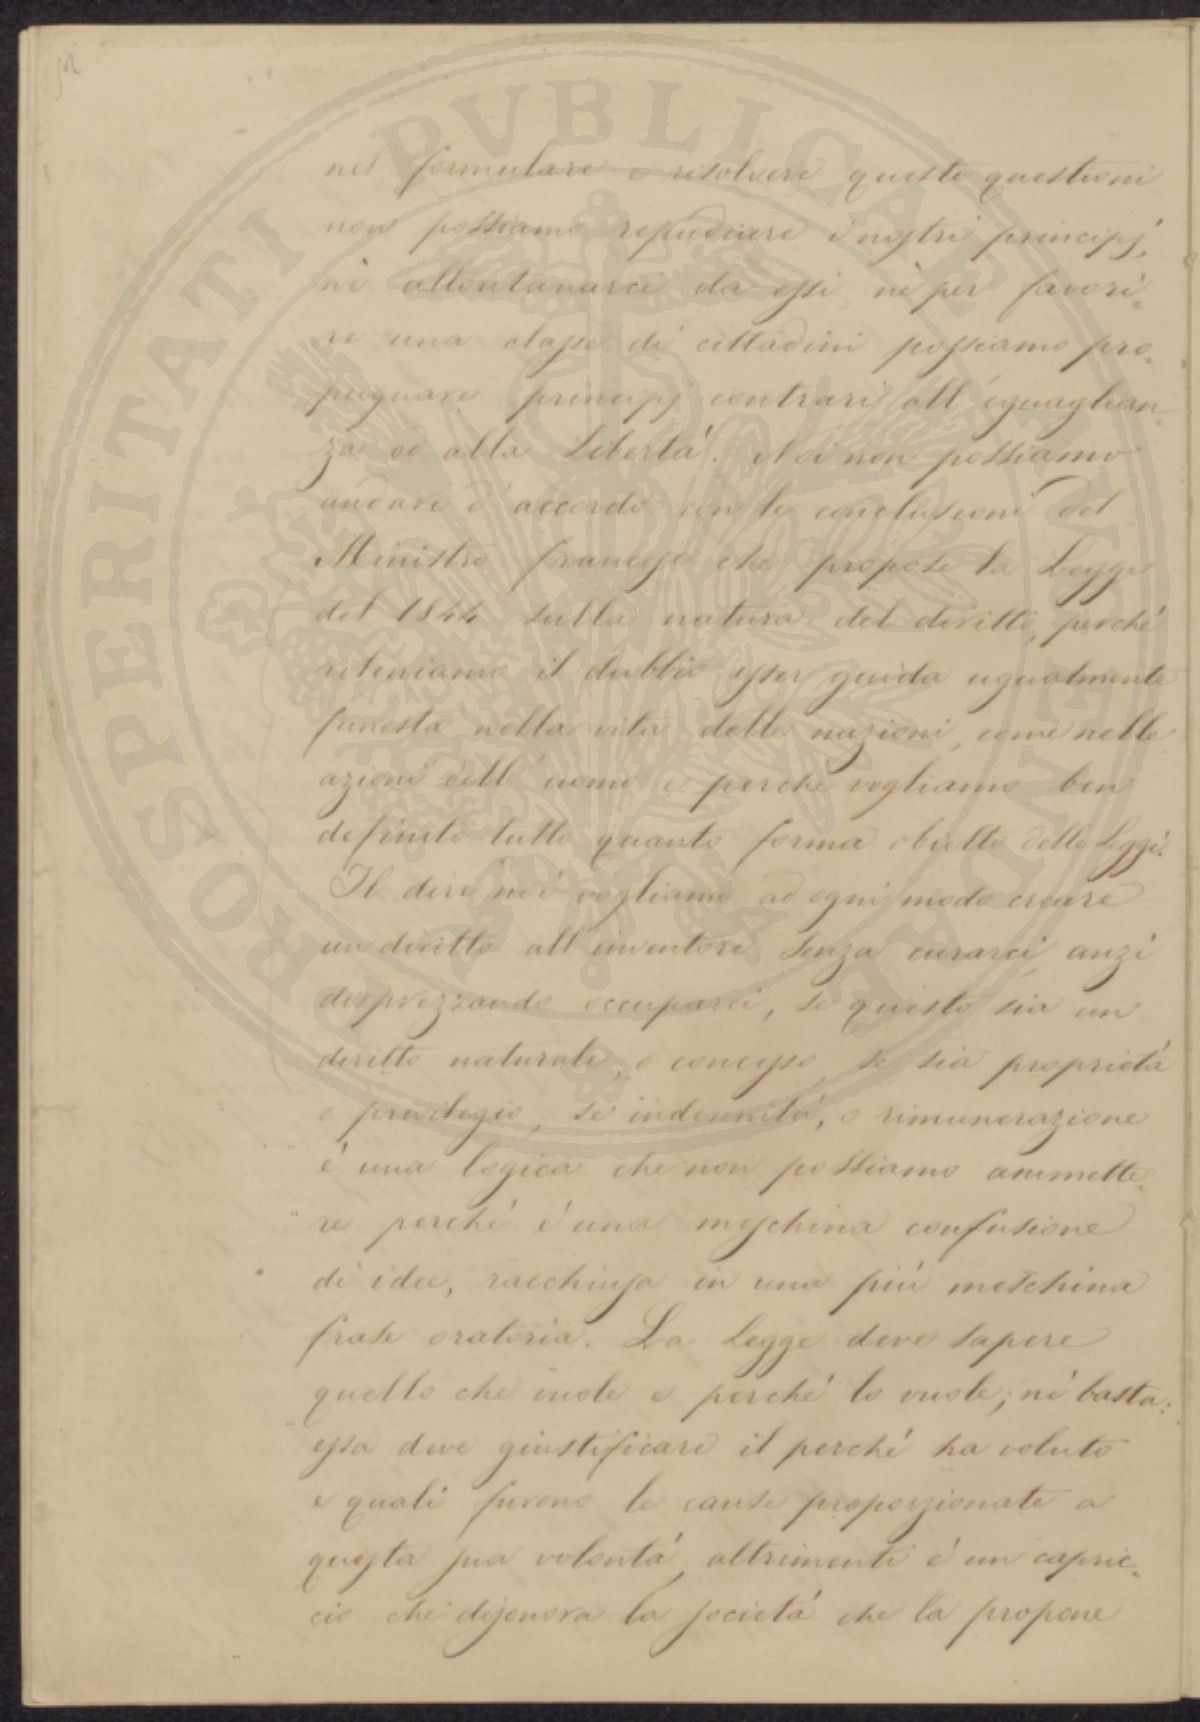 PROSPERITATI PVBLICAE AVGENDAE
nel formulare e risolvere queste questioni
non possiamo repudiare i nostri principj,
nè allontanarci da essi, nè per favori=
re una classe di cittadini possiamo pro=
pugnare principj contrari all'eguaglian=
za od alla Libertà. Noi non possiamo
andare d'accordo con le conclusioni del
Ministro francese che propose la Legge
del 1844 sulla natura del diritto, perché
riteniamo il dubbio esser guida ugualmente
funesta nella vita delle nazioni, come nelle
azioni dell'uomo e perché vogliamo ben
definito tutto quanto forma obietto delle Leggi.
Il dire noi vogliamo ad ogni modo creare
un diritto all'inventore senza curarci, anzi
disprezzando occuparci, se questo sia un
diritto naturale, o concesso, se sia proprietà
o privilegio, se indennità, o rimunerazione
é una logica che non possiamo ammette=
re perché é una meschina confusione
di idee, racchiusa in una più meschina
frase oratoria. La Legge deve sapere
quello che vuole e perché lo vuole; nè basta:
essa deve giustificare il perché ha voluto
e quali furono le cause proporzionate a
questa sua volontà, altrimenti é un capric=
cio che disonora la società che la propone